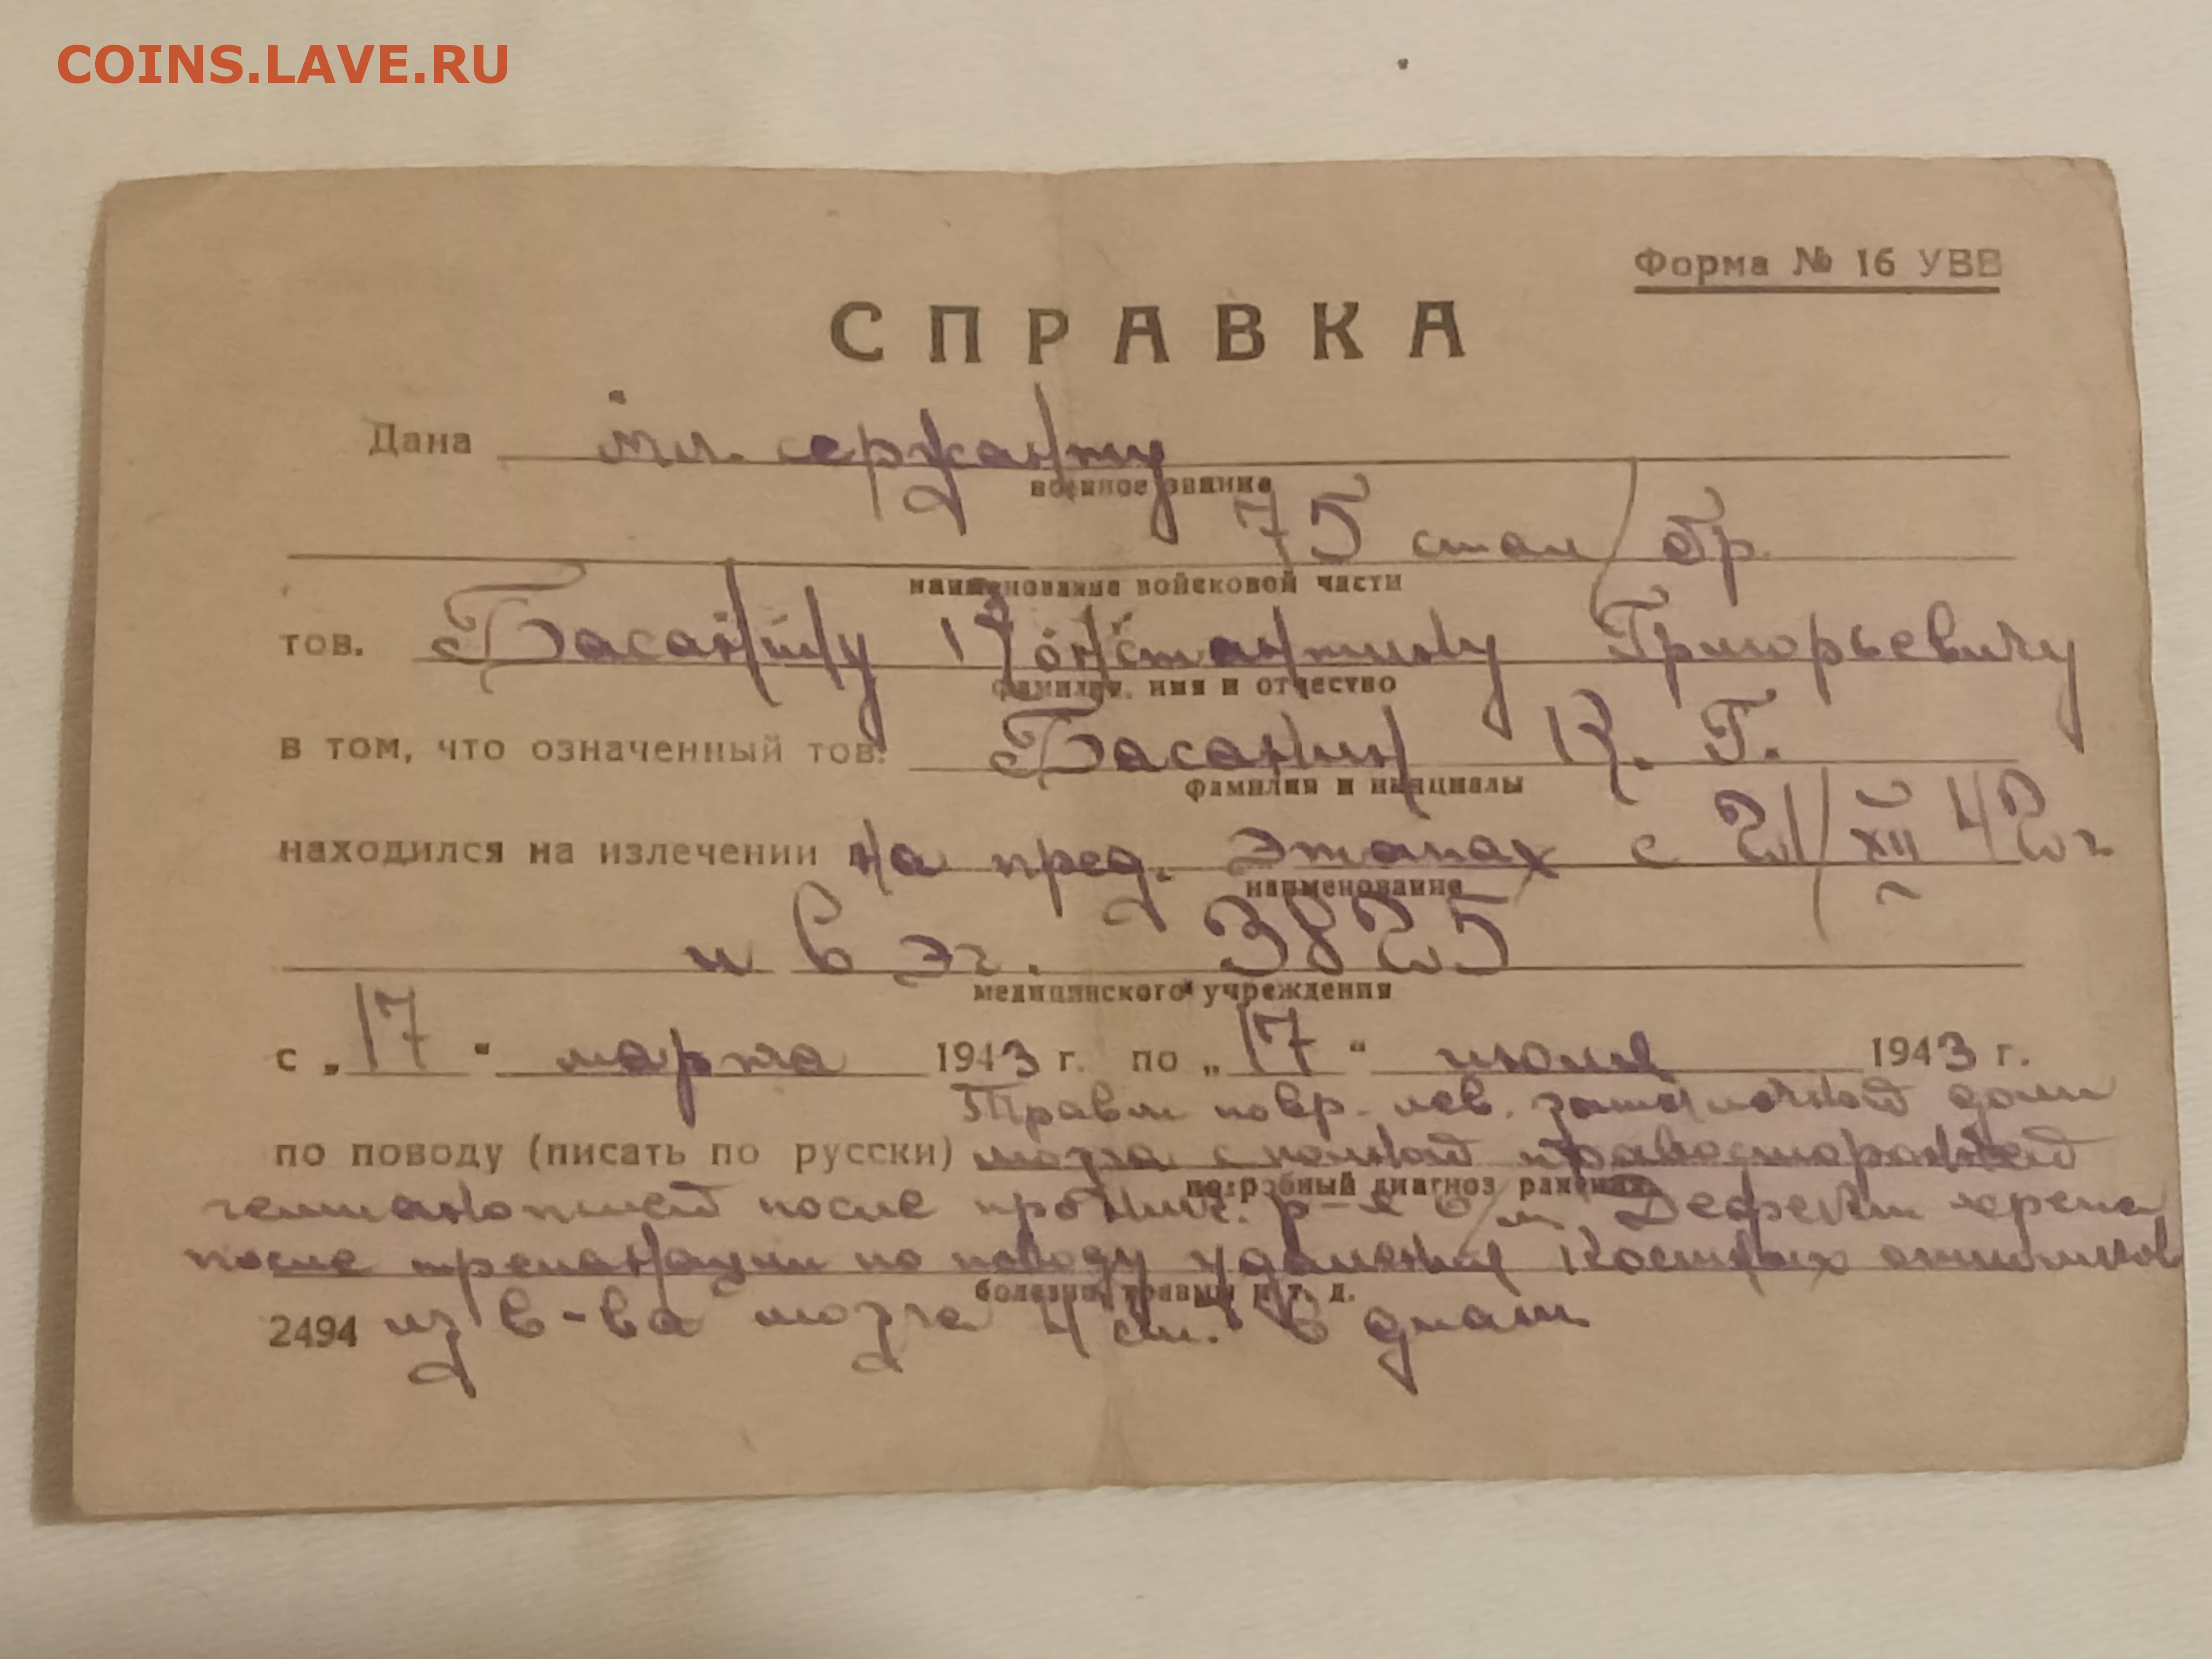 COINS.LAVE.RU
Форма № 16 УВВ
СПРАВКА
Дана мл. сержанту
военное звание
75 стал/бр.
наименование войсковой части
тов. Басанину Константину Григорьевичу
фамилия, имя и отчество
в том, что означенный тов. Басанин К. Г.
фамилия и инициалы
находился на излечении на пред. этапах с 21/XII 42 г
наименование
и в эг. 3825
медицинского учреждения
с „17“ марта 1943 г. по „17“ июля 1943 г.
Травм повр. лев. затылочной доли
по поводу (писать по русски) мозга с полной правосторонней
подробный диагноз ранения,
гемианопсией после проник. р-я б/м. Дефект черепа
после трепанации по поводу удаления костных отломков
болезни, травмы и т. д.
2494 из в-ва мозга 4 см. в диам.